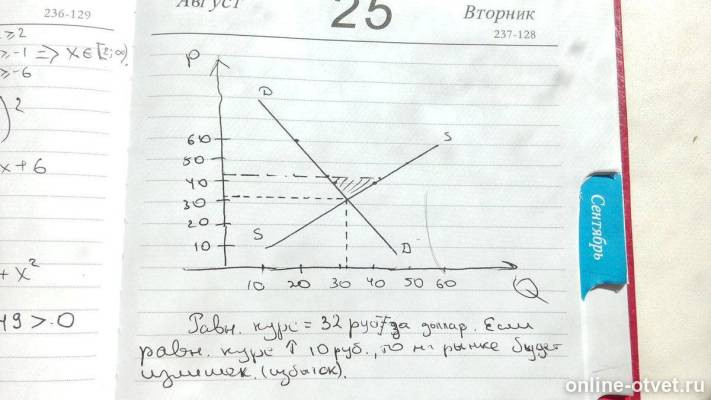 236-129
Август
25
Вторник
237-128
≥ 2
≥ -1 => x ∈ [2; ∞)
≥ -6
)²
x + 6
+ x²
49 > 0
P
D
60
50
40
30
20
10
S
S
D
10 20 30 40 50 60
Q
Сентябрь
Равн. курс = 32 руб за доллар. Если
равн. курс ↑ 10 руб., то на рынке будет
излишек. (избыток).
online-otvet.ru